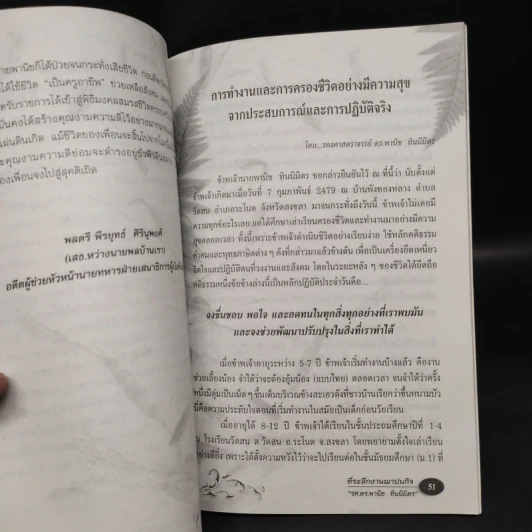 ายพานิชก็ได้ป่วยจนกระทั่งเสียชีวิต
ได้ใช้ชีวิต "เป็นครูอาชีพ" ช่วยเหลือสังคม
แผ่นดินเกิด แม้ชีวิตของเพื่อนจะสิ้นไปจาก
ะคุณงามความดีย่อมจะดำรงอยู่
องเพื่อนจงไปสู่สุคติเถิด
พลตรี พีรยุทธ์ ศิรินุพงศ์
(เสธ.หว่างนายพลบ้านเรา)
อดีตผู้ช่วยหัวหน้านายทหารฝ่ายเสนาธิการ
การทำงานและการครองชีวิตอย่างมีความสุข
จากประสบการณ์และการปฏิบัติจริง
โดย...รองศาสตราจารย์ ดร.พานิช ทินนิมิตร
ข้าพเจ้านายพานิช ทินนิมิตร ขอกล่าวยืนยันไว้ ณ ที่นี้ว่า นับตั้งแต่
ข้าพเจ้าเกิดมาเมื่อวันที่ 7 กุมภาพันธ์ 2479 ณ บ้านพังทองหลาง ตำบล
วัดสน อำเภอระโนด จังหวัดสงขลา มาจนกระทั่งถึงวันนี้ ข้าพเจ้าไม่เคยมี
ความทุกข์อะไรเลย แต่ได้ศึกษาเล่าเรียนครองชีวิตและทำงานมาอย่างมีความ
สุขตลอดเวลา ทั้งนี้เพราะข้าพเจ้าดำเนินชีวิตอย่างเรียบง่าย ใช้หลักคติธรรม
คำคมและพุทธภาษิตต่าง ๆ ดังที่กล่าวมาแล้วข้างต้น เพื่อเป็นเครื่องยึดเหนี่ยว
จิตใจและปฏิบัติตนทั้งงานและสังคม โดยในระยะหลัง ๆ ของชีวิตได้ยึดถือ
คติธรรมหนึ่งข้อข้างล่างนี้เป็นหลักปฏิบัติประจำวันคือ...
จงชื่นชอบ พอใจ และอดทนในทุกสิ่งทุกอย่างที่เราพบมัน
และจงช่วยพัฒนาปรับปรุงในสิ่งที่เราทำได้
เมื่อข้าพเจ้าอายุระหว่าง 5-7 ปี ข้าพเจ้าเริ่มทำงานบ้างแล้ว คืองาน
ช่วยเลี้ยงน้อง จำได้ว่าจะต้องอุ้มน้อง (แบบไทย) ตลอดเวลา จนจำได้ว่าครั้ง
หนึ่งมีตุ่มเป็นเม็ดๆ ขึ้นเต็มบริเวณข้างสะเอวดังที่ชาวบ้านเรียกว่าขึ้นหนามบัว
นี่คือความประทับใจตอนที่เริ่มทำงานในสมัยเป็นเด็กก่อนวัยเรียน
เมื่ออายุได้ 8-12 ปี ข้าพเจ้าได้เรียนในชั้นประถมศึกษาปีที่ 1-4
ณ โรงเรียนวัดสน ต.วัดสน อ.ระโนด จ.สงขลา โดยพยายามตั้งใจเล่าเรียน
อย่างดียิ่ง เพราะได้ตั้งความหวังไว้ว่าจะไปเรียนต่อในชั้นมัธยมศึกษา (ม.1) ที่
ที่ระลึกงานฌาปนกิจ
"รศ.ดร.พานิช ทินนิมิตร"
51